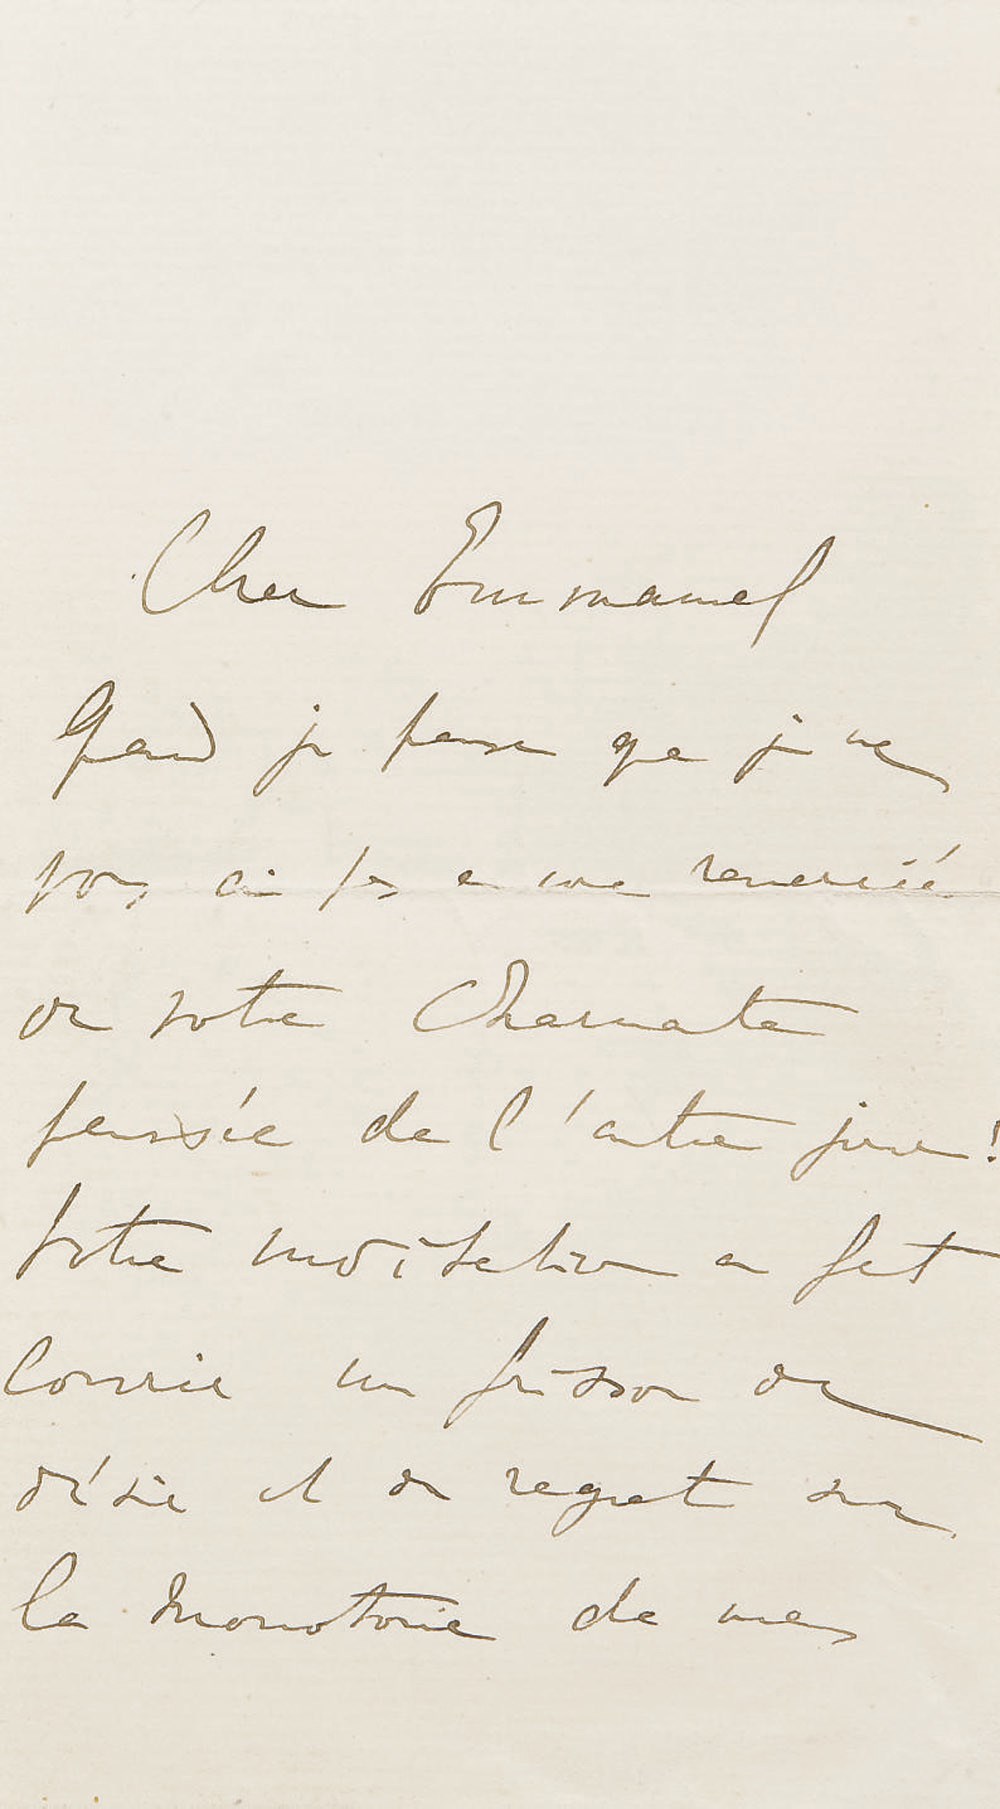 Cher Emmanuel
Quand je pense que je ne
vous ai pas encore remercié
de votre charmante
pensée de l'autre jour!
Votre invitation a fait
courir un frisson de
désir et de regret sur
la monotonie de mes